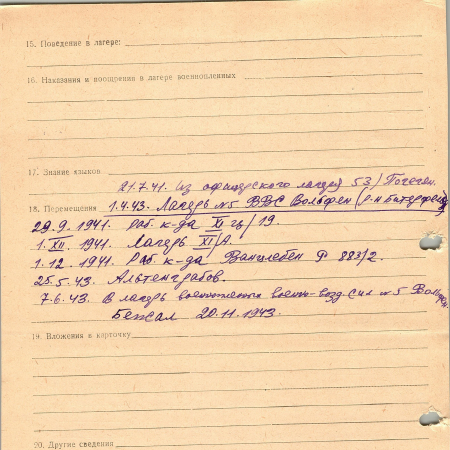 15. Поведение в лагере:
16. Наказания и поощрения в лагере военнопленных
17. Знание языков
21.7.41. Из офицерского лагеря 53/Погеген.
18. Перемещения 1.4.43. Лагерь №5 ВВС Вольфен (р-н Биттерфельд)
29.9.1941. Раб. к-да XI 19.
1.XII.1941. Лагерь XI/А.
1.12.1941. Раб. к-да Ванцлебен Р 883/2.
25.5.43. Альтенграбов.
7.6.43. В лагерь военнопленных военно-возд. сил №5 Вольфен
Бежал 20.11.1943.
19. Вложения в карточку
20. Другие сведения